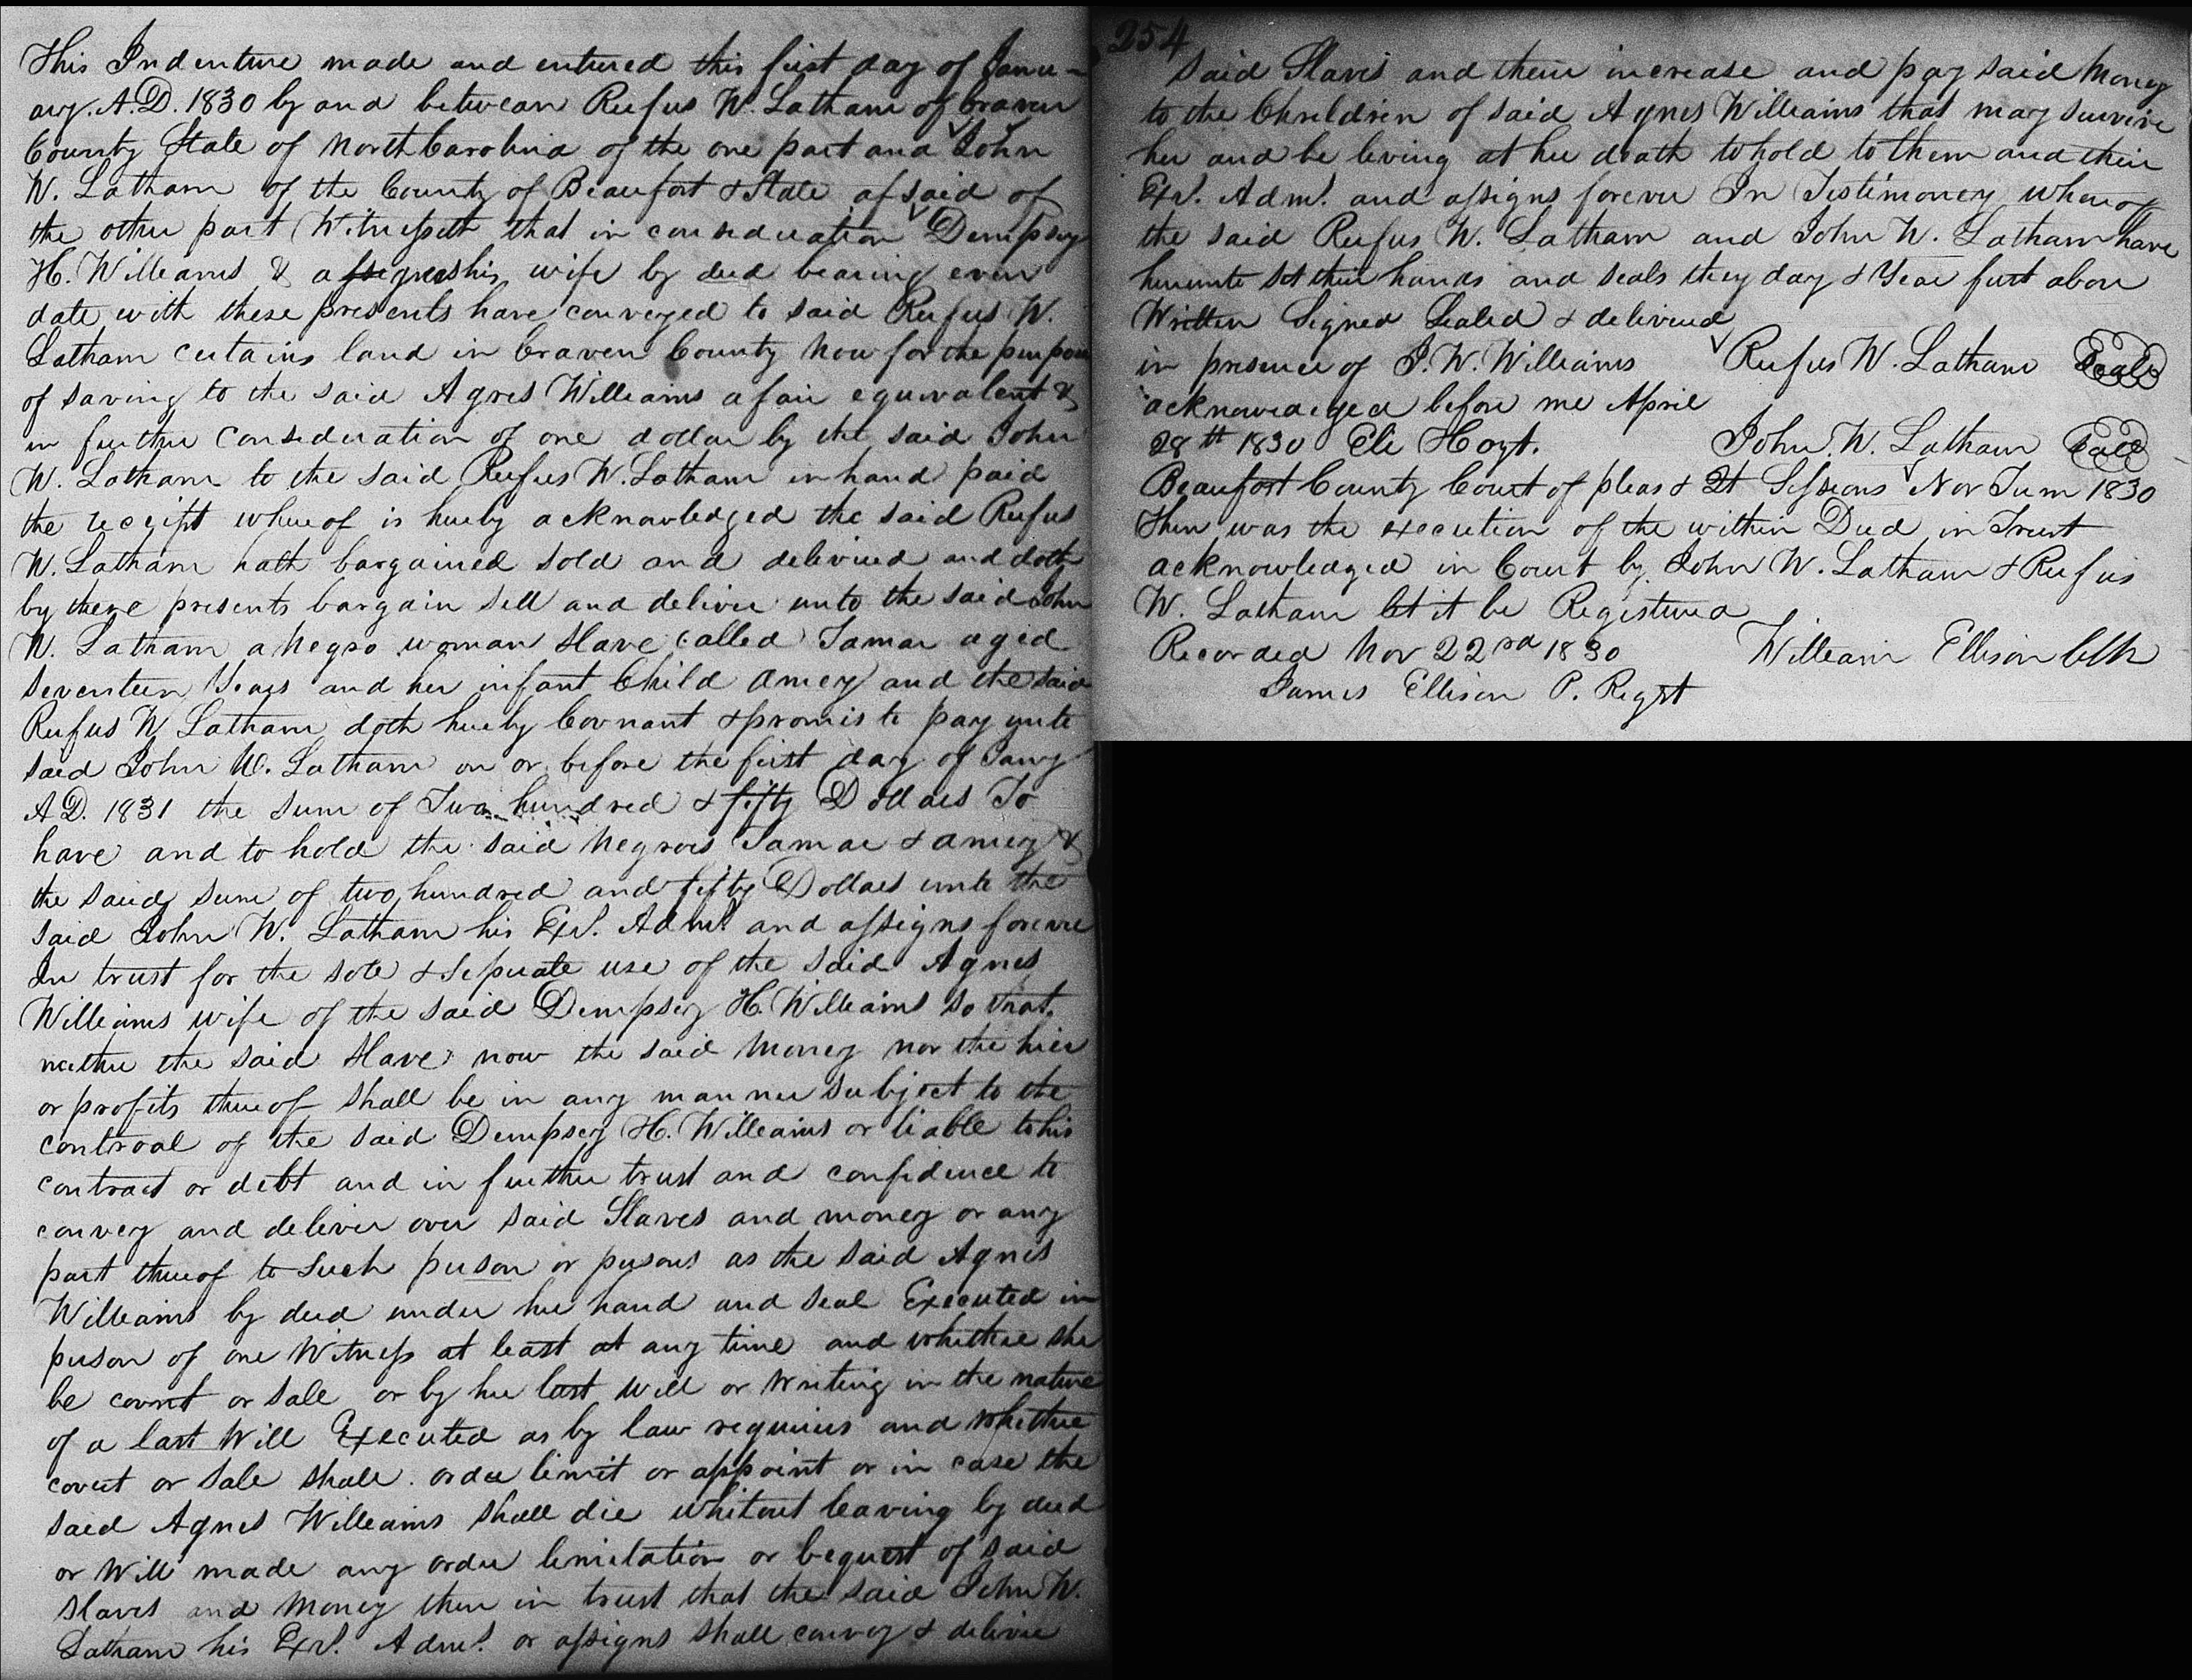 This Indenture made and entured this first day of Janu-
ary. A.D. 1830 by and between Rufus W. Latham of Craven
County State of North Carolina of the one part and John
W. Latham of the County of Beaufort & State afsaid of
the other part Witnesseth that in consideration Dempsey
H. Williams & assignes his wife by deed bearing even
date with these presents have conveyed to said Rufus W.
Latham certains land in Craven County Now for the purpose
of saving to the said Agnes Williams a fair equivalent &
in further consideration of one dollar by the said John
W. Latham to the said Rufus W. Latham in hand paid
the receipt whereof is hereby acknowledged the said Rufus
W. Latham hath bargained sold and delivered and doth
by these presents bargain sell and deliver unto the said John
W. Latham a Negro woman slave called Tamar aged
Seventeen Years and her infant Child Amey and the said
Rufus W. Latham doth hereby Covnant & promis to pay unto
said John W. Latham on or before the first day of Jany
A.D. 1831 the sum of Two hundred & fifty Dollars To
have and to hold the said Negroes Tamar & Amey &
the said sum of two hundred and fifty Dollars unto the
said John W. Latham his Exr. Admr. and assigns forever
In trust for the sole & Seperate use of the said Agnes
Williams wife of the said Dempsey H. Williams so that
neither the said Slaves now the said Money nor the hier
or profits thereof shall be in any manner subject to the
controal of the said Dempsey H. Williams or liable to his
contract or debt and in further trust and confidence to
convey and deliver over said Slaves and money or any
part thereof to such person or persons as the said Agnes
Williams by deed under her hand and seal Executed in
person of one Witness at least at any time and whether she
be covert or sole or by her last Will or Writing in the nature
of a last Will Executed as by law requires and whether
covert or sole shall order limit or appoint or in case the
said Agnes Williams shall die whitout leaving by deed
or Will made any order limitation or bequest of said
slaves and Money then in trust that the said John W.
Latham his Exr. Admr. or assigns shall convey & deliver
254
said Slaves and their increase and pay said Money
to the Chrildren of said Agnes Williams that may survive
her and be living at her death to hold to them and their
Exr. Admr. and assigns forever In Testimoney whereof
the said Rufus W. Latham and John W. Latham have
hereunto set their hands and seals they day & Year first above
Written Signed Sealed & delivered
in presence of J. W. Williams Rufus W. Latham Seal
acknowledged before me April
28th 1830 Eli Hoyt. John W. Latham Seal
Beaufort County Court of pleas & Qt Sessions Nov Turm 1830
Then was the execution of the within Deed in Trust
acknowledged in Court by John W. Latham & Rufus
W. Latham let it be Registered
Recorded Nov 22nd 1830 William Ellison Clk
James Ellison P. Regst